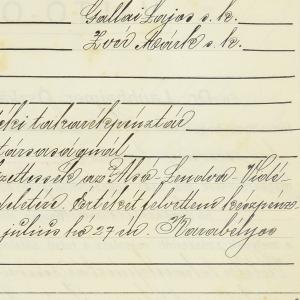 Gallai Lajos s. k.
Zvér Márk s. k.
éki takarékpénztár
társaságnál
zettessék az Alsó-Lendva-Vidé-
deletére. Értékét felvettem készpénz-
július hó 27 én. Karabélyos